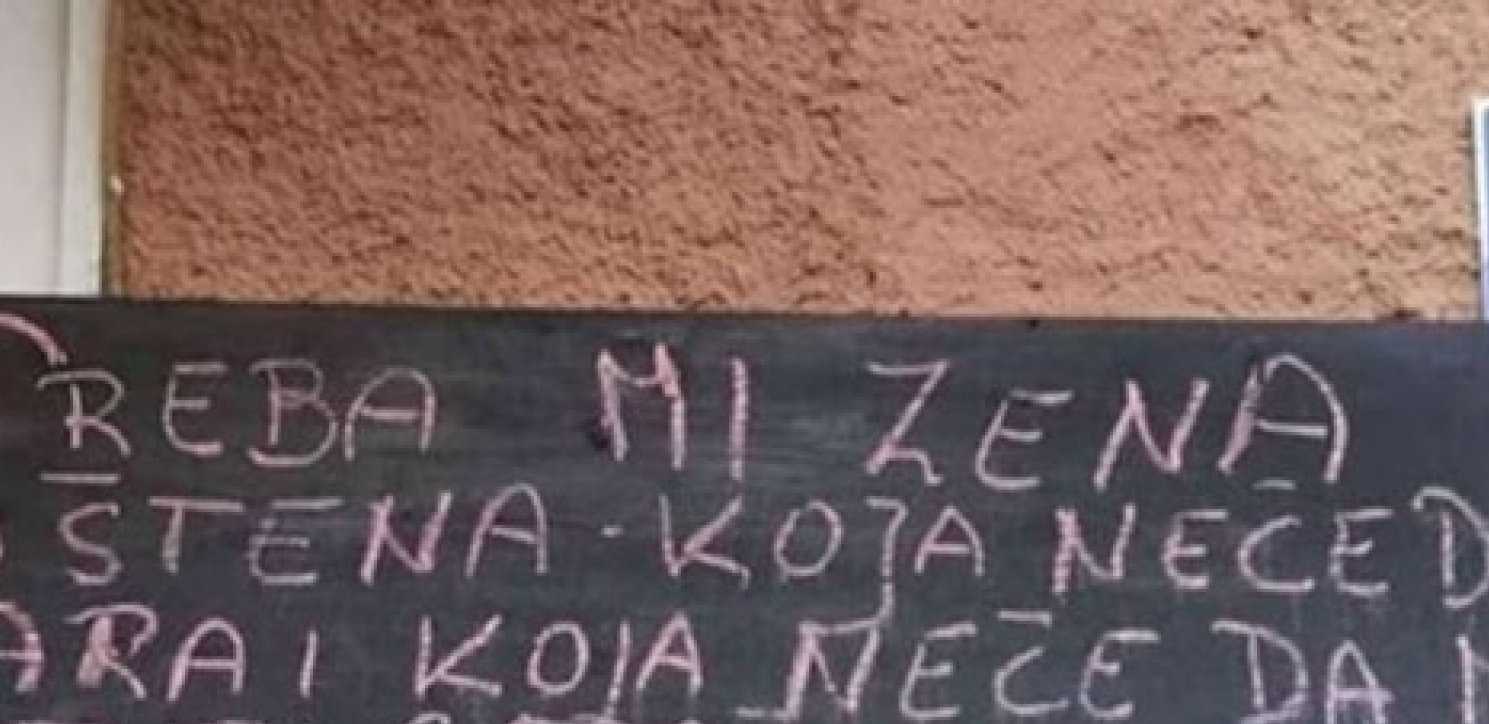 REBA MI ZENA
ŠTENA-KOJA NEČE D
ARA I KOJA NEČE DA